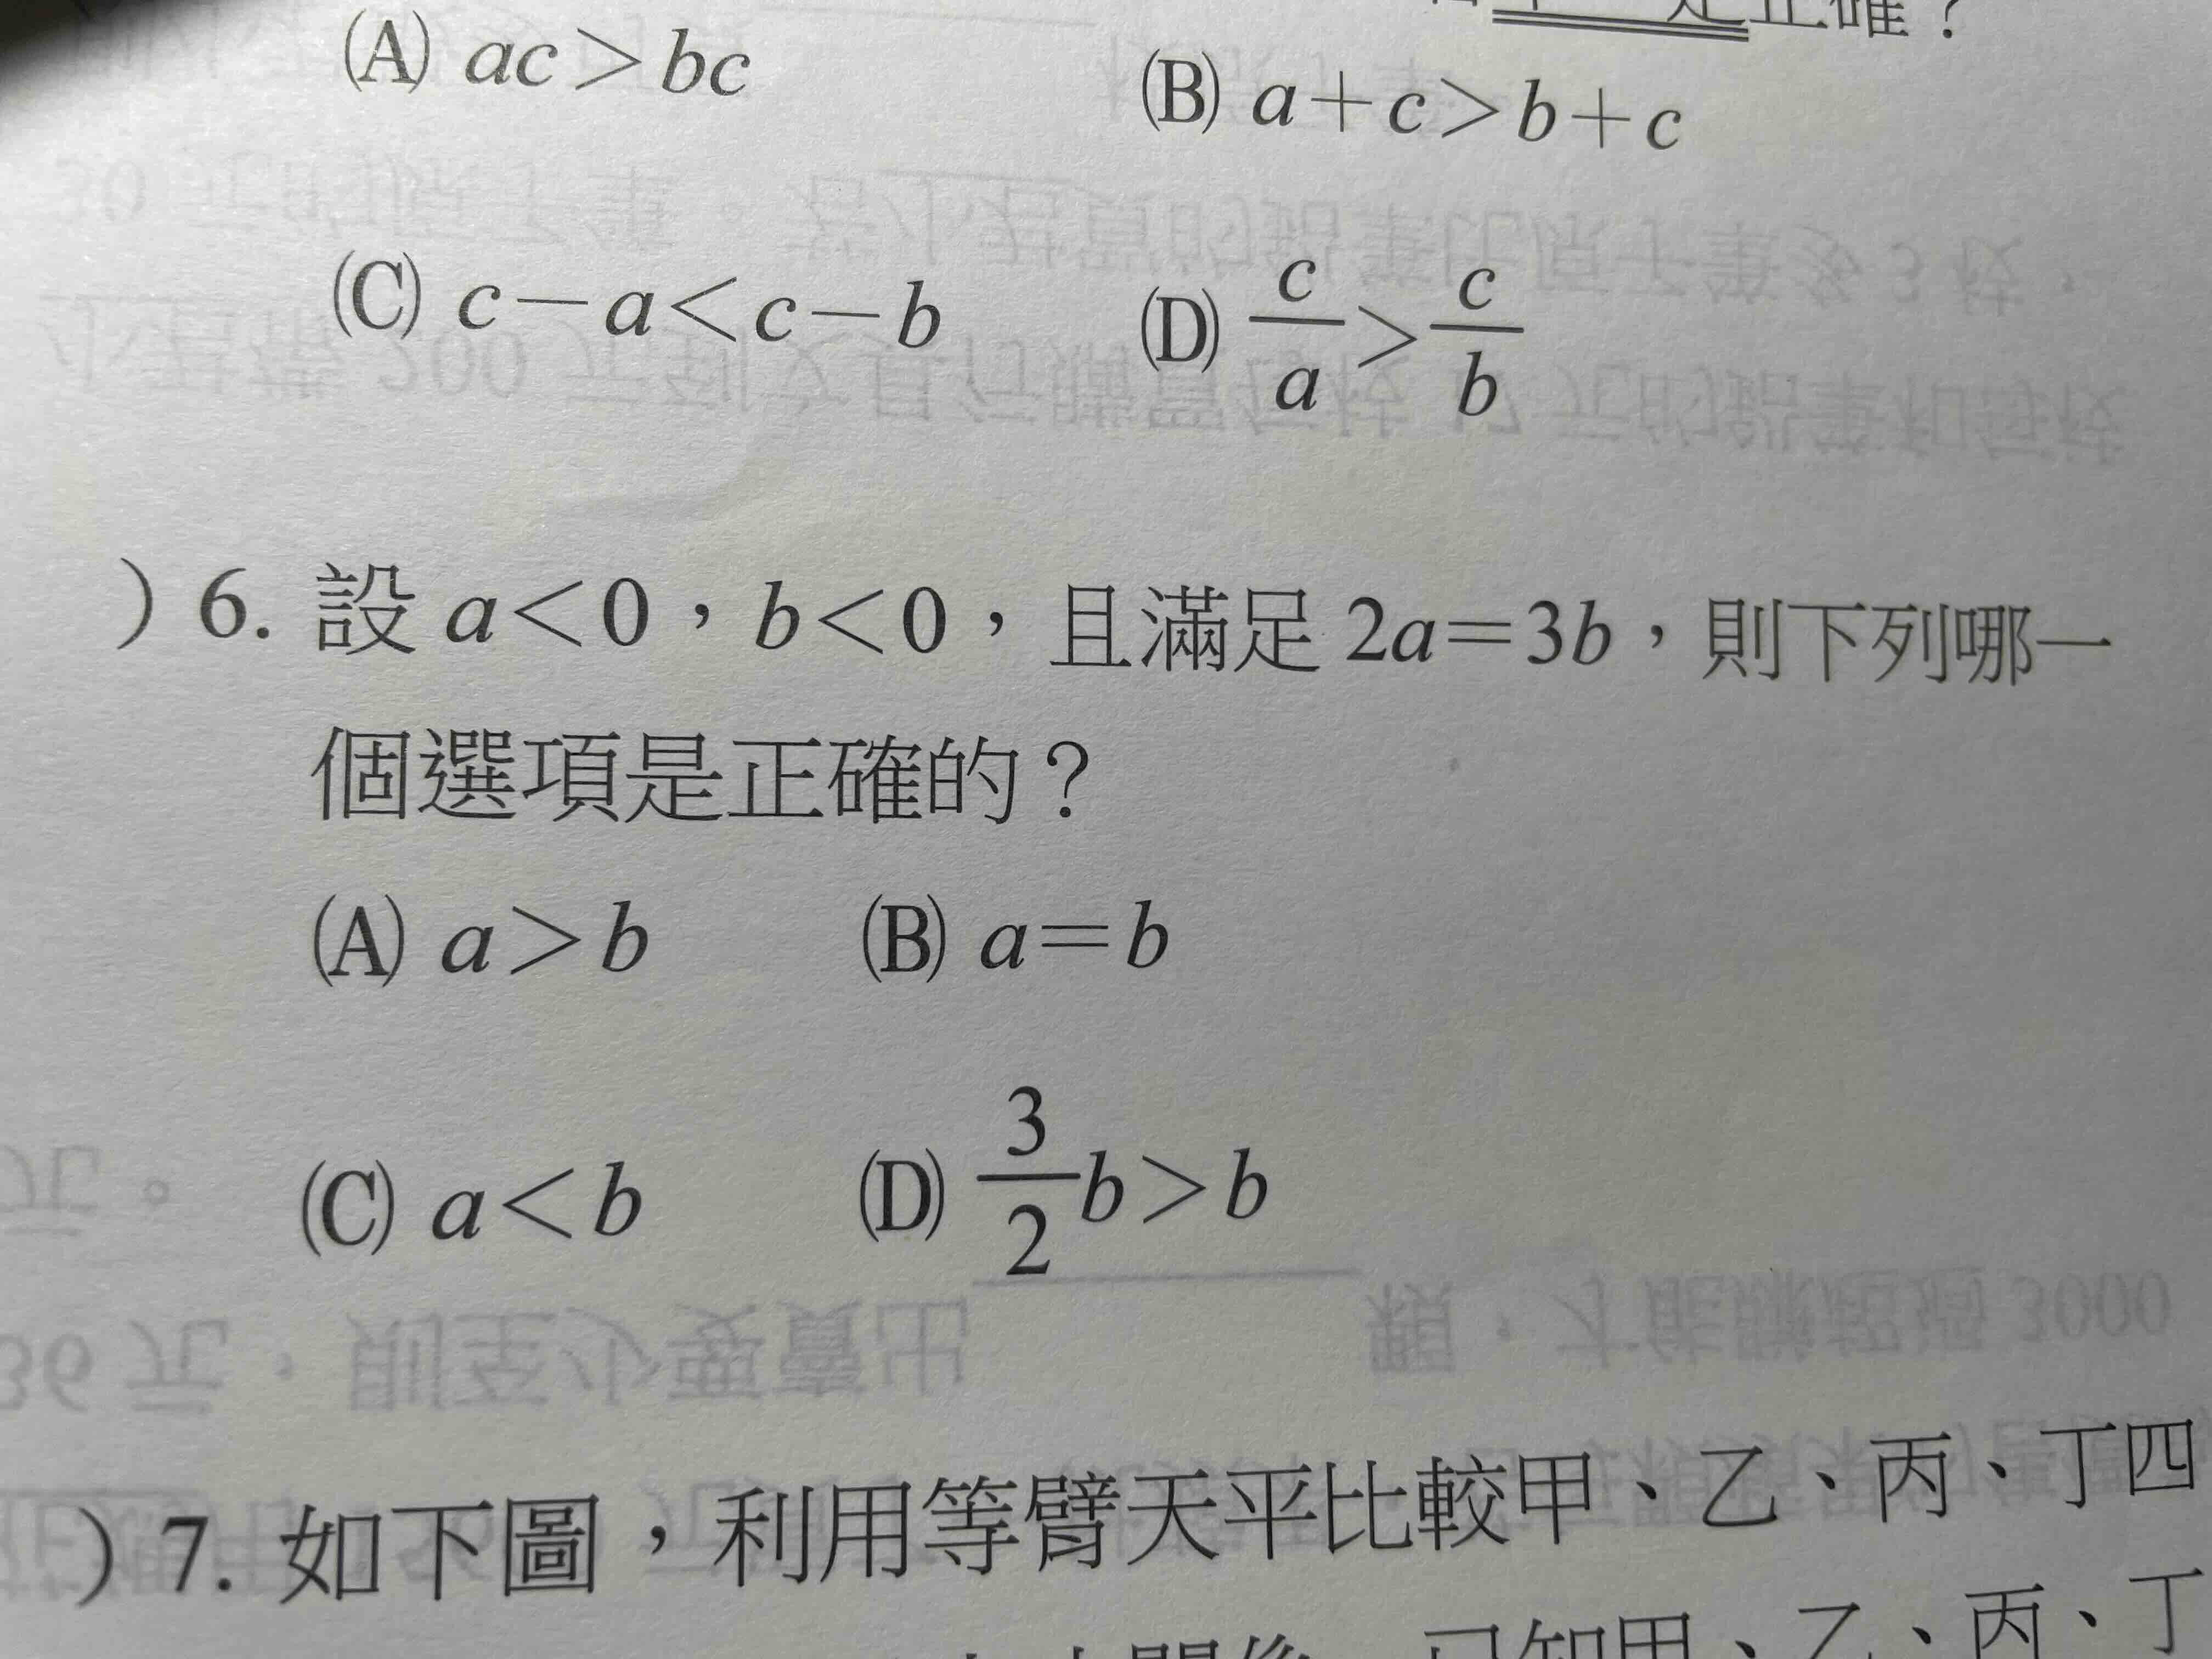 是正確？
(A) ac＞bc (B) a＋c＞b＋c
(C) c－a＜c－b (D) c/a＞c/b
) 6. 設 a＜0，b＜0，且滿足 2a＝3b，則下列哪一
個選項是正確的？
(A) a＞b (B) a＝b
(C) a＜b (D) 3/2 b＞b
) 7. 如下圖，利用等臂天平比較甲、乙、丙、丁四
已知甲、乙、丙、丁